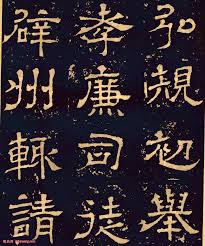 弘規初舉
孝廉司徒
辟州輒請